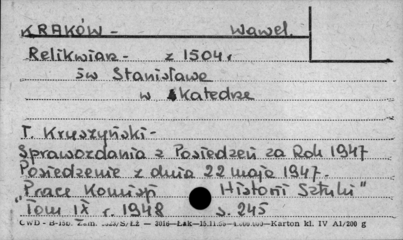 KRAKÓW - Wawel.
Relikwiarz - z 1504 r
św Stanisława
w Katedrze
T. Kruszyński -
Sprawozdania z Posiedzeń za Rok 1947
Posiedzenie z dnia 22 maja 1947.
"Prace Komisji Historii Sztuki"
Tom IX r. 1948 s. 245
Karton kl. IV A1/200 g